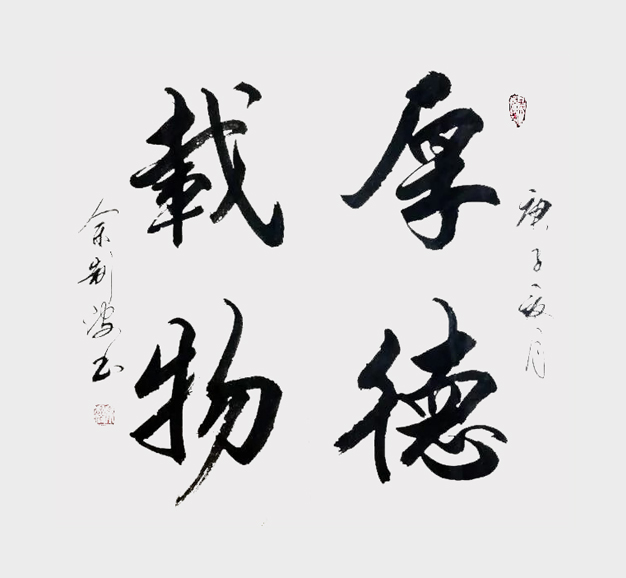 庚子夏月
厚德
載物
余 书